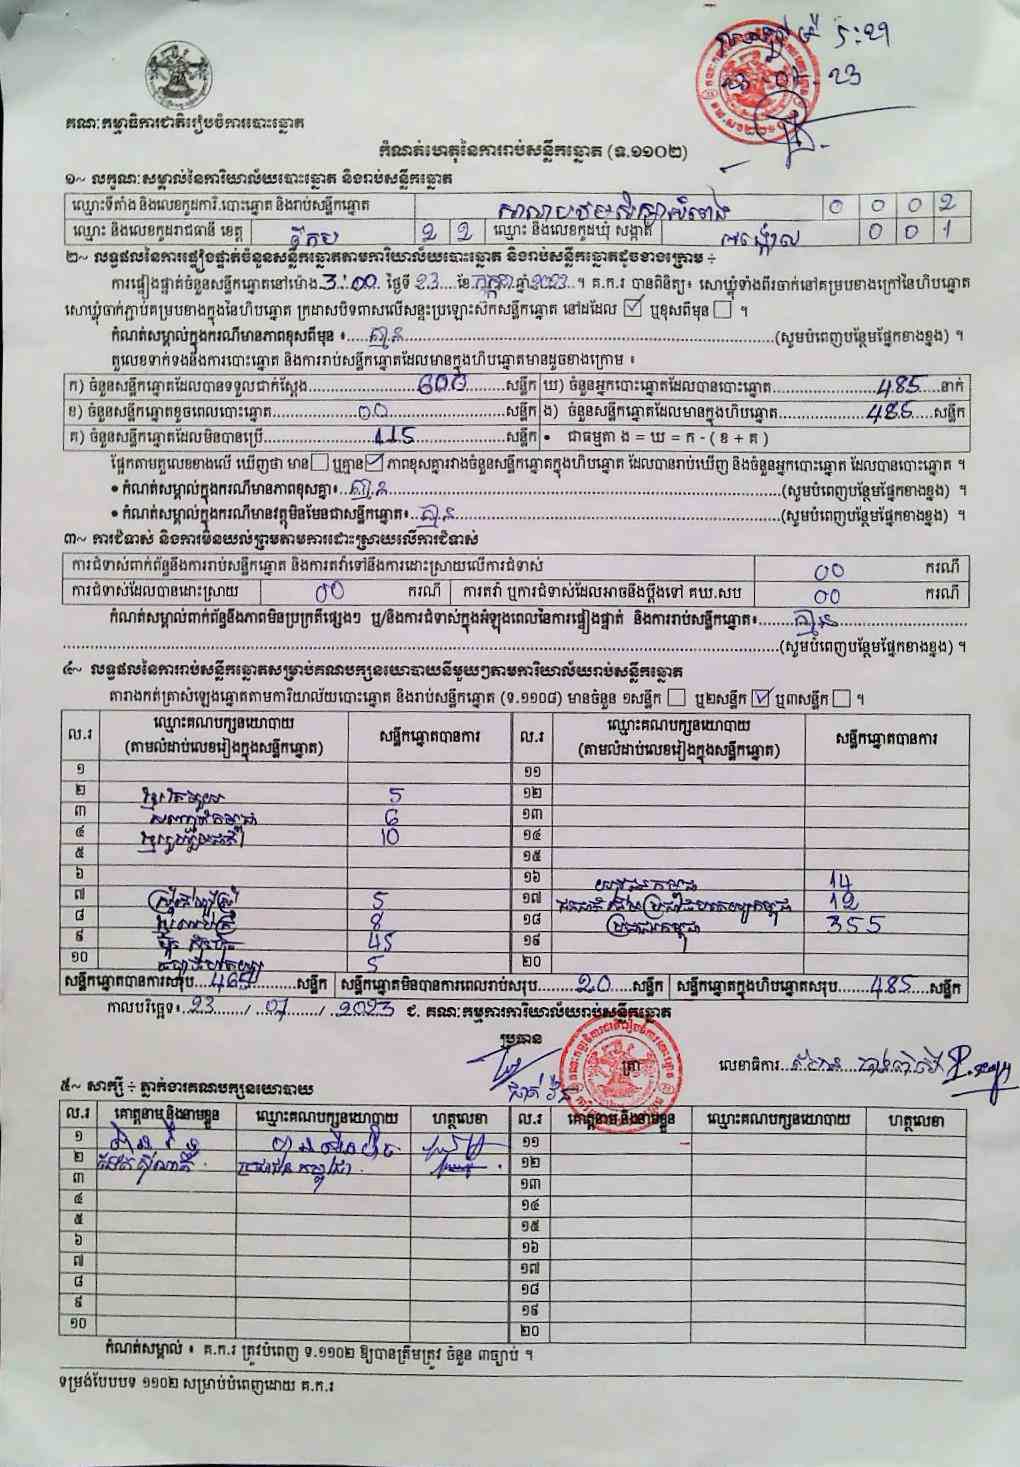 ៤ៈ២១
២៣-០៤-23
គណៈកម្មាធិការជាតិរៀបចំការបោះឆ្នោត
កំណត់ហេតុនៃការរាប់សន្លឹកឆ្នោត (ទ.១១០២)
១~ លក្ខណៈសម្គាល់នៃការិយាល័យបោះឆ្នោត និងរាប់សន្លឹកឆ្នោត
ឈ្មោះទីតាំង និងលេខកូដការិ.បោះឆ្នោត និងរាប់សន្លឹកឆ្នោត 0 0 0 2
ឈ្មោះ និងលេខកូដរាជធានី ខេត្ត 2 2 ឈ្មោះ និងលេខកូដឃុំ សង្កាត់ 0 0 1
២~ លទ្ធផលនៃការផ្ទៀងផ្ទាត់ចំនួនសន្លឹកឆ្នោតតាមការិយាល័យបោះឆ្នោត និងរាប់សន្លឹកឆ្នោតដូចខាងក្រោម ÷
ការផ្ទៀងផ្ទាត់ចំនួនសន្លឹកឆ្នោតនៅម៉ោង 3:00 ថ្ងៃទី 23 ខែ កក្កដា ឆ្នាំ 2023 ។ គ.ក.រ បានពិនិត្យ៖ សោឃ្លុំទាំងពីរចាក់នៅគម្របខាងក្រៅនៃហិបឆ្នោត
សោឃ្លុំចាក់ភ្ជាប់គម្របខាងក្នុងនៃហិបឆ្នោត ក្រដាសបិទពាសលើសន្ទះប្រឡោះស៊កសន្លឹកឆ្នោត នៅដដែល ☑ ឬខុសពីមុន ☐ ។
កំណត់សម្គាល់ក្នុងករណីមានភាពខុសពីមុន ៖ គ្មាន (សូមបំពេញបន្ថែមផ្នែកខាងខ្នង) ។
តួលេខទាក់ទងនឹងការបោះឆ្នោត និងការរាប់សន្លឹកឆ្នោតដែលមានក្នុងហិបឆ្នោតមានដូចខាងក្រោម ៖
ក) ចំនួនសន្លឹកឆ្នោតដែលបានទទួលជាក់ស្តែង 600 សន្លឹក ឃ) ចំនួនអ្នកបោះឆ្នោតដែលបានបោះឆ្នោត 485 នាក់
ខ) ចំនួនសន្លឹកឆ្នោតខូចពេលបោះឆ្នោត 00 សន្លឹក ង) ចំនួនសន្លឹកឆ្នោតដែលមានក្នុងហិបឆ្នោត 485 សន្លឹក
គ) ចំនួនសន្លឹកឆ្នោតដែលមិនបានប្រើ 115 សន្លឹក • ជាធម្មតា ង = ឃ = ក - ( ខ + គ )
ផ្អែកតាមតួលេខខាងលើ ឃើញថា មាន ☐ ឬគ្មាន ☑ ភាពខុសគ្នារវាងចំនួនសន្លឹកឆ្នោតក្នុងហិបឆ្នោត ដែលបានរាប់ឃើញ និងចំនួនអ្នកបោះឆ្នោត ដែលបានបោះឆ្នោត ។
• កំណត់សម្គាល់ក្នុងករណីមានភាពខុសគ្នា៖ គ្មាន (សូមបំពេញបន្ថែមផ្នែកខាងខ្នង) ។
• កំណត់សម្គាល់ក្នុងករណីមានវត្ថុមិនមែនជាសន្លឹកឆ្នោត៖ គ្មាន (សូមបំពេញបន្ថែមផ្នែកខាងខ្នង) ។
៣~ ការជំទាស់ និងការមិនយល់ព្រមតាមការដោះស្រាយលើការជំទាស់
ការជំទាស់ពាក់ព័ន្ធនឹងការរាប់សន្លឹកឆ្នោត និងការតវ៉ាទៅនឹងការដោះស្រាយលើការជំទាស់ 00 ករណី
ការជំទាស់ដែលបានដោះស្រាយ 00 ករណី ការតវ៉ា ឬការជំទាស់ដែលអាចនឹងប្តឹងទៅ គឃ.សប 00 ករណី
កំណត់សម្គាល់ពាក់ព័ន្ធនឹងភាពមិនប្រក្រតីផ្សេងៗ ឬ/និងការជំទាស់ក្នុងអំឡុងពេលនៃការផ្ទៀងផ្ទាត់ និងការរាប់សន្លឹកឆ្នោត៖ គ្មាន
(សូមបំពេញបន្ថែមផ្នែកខាងខ្នង) ។
៤~ លទ្ធផលនៃការរាប់សន្លឹកឆ្នោតសម្រាប់គណបក្សនយោបាយនីមួយៗតាមការិយាល័យរាប់សន្លឹកឆ្នោត
តារាងកត់ត្រាសំឡេងឆ្នោតតាមការិយាល័យបោះឆ្នោត និងរាប់សន្លឹកឆ្នោត (ទ.១១០៨) មានចំនួន ១សន្លឹក ☐ ឬ២សន្លឹក ☑ ឬ៣សន្លឹក ☐ ។
ល.រ ឈ្មោះគណបក្សនយោបាយ (តាមលំដាប់លេខរៀងក្នុងសន្លឹកឆ្នោត) សន្លឹកឆ្នោតបានការ ល.រ ឈ្មោះគណបក្សនយោបាយ (តាមលំដាប់លេខរៀងក្នុងសន្លឹកឆ្នោត) សន្លឹកឆ្នោតបានការ
១ ១១
២ 5 ១២
៣ 6 ១៣
៤ 10 ១៤
៥ ១៥
៦ ១៦ 14
៧ 5 ១៧ 12
៨ 8 ១៨ ប្រជាជនកម្ពុជា 355
៩ 45 ១៩
១០ 5 ២០
សន្លឹកឆ្នោតបានការសរុប 465 សន្លឹក សន្លឹកឆ្នោតមិនបានការពេលរាប់សរុប 20 សន្លឹក សន្លឹកឆ្នោតក្នុងហិបឆ្នោតសរុប 485 សន្លឹក
កាលបរិច្ឆេទ៖ 23 / 07 / 2023 ជ. គណៈកម្មការការិយាល័យរាប់សន្លឹកឆ្នោត
ប្រធាន ត្រា លេខាធិការ
៥~ សាក្សី ÷ ភ្នាក់ងារគណបក្សនយោបាយ
ល.រ គោត្តនាម និងនាមខ្លួន ឈ្មោះគណបក្សនយោបាយ ហត្ថលេខា ល.រ គោត្តនាម និងនាមខ្លួន ឈ្មោះគណបក្សនយោបាយ ហត្ថលេខា
១ ១១
២ ប្រជាជន កម្ពុជា ១២
៣ ១៣
៤ ១៤
៥ ១៥
៦ ១៦
៧ ១៧
៨ ១៨
៩ ១៩
១០ ២០
កំណត់សម្គាល់ ៖ គ.ក.រ ត្រូវបំពេញ ទ.១១០២ ឱ្យបានត្រឹមត្រូវ ចំនួន ៣ច្បាប់ ។
ទម្រង់បែបបទ ១១០២ សម្រាប់បំពេញដោយ គ.ក.រ